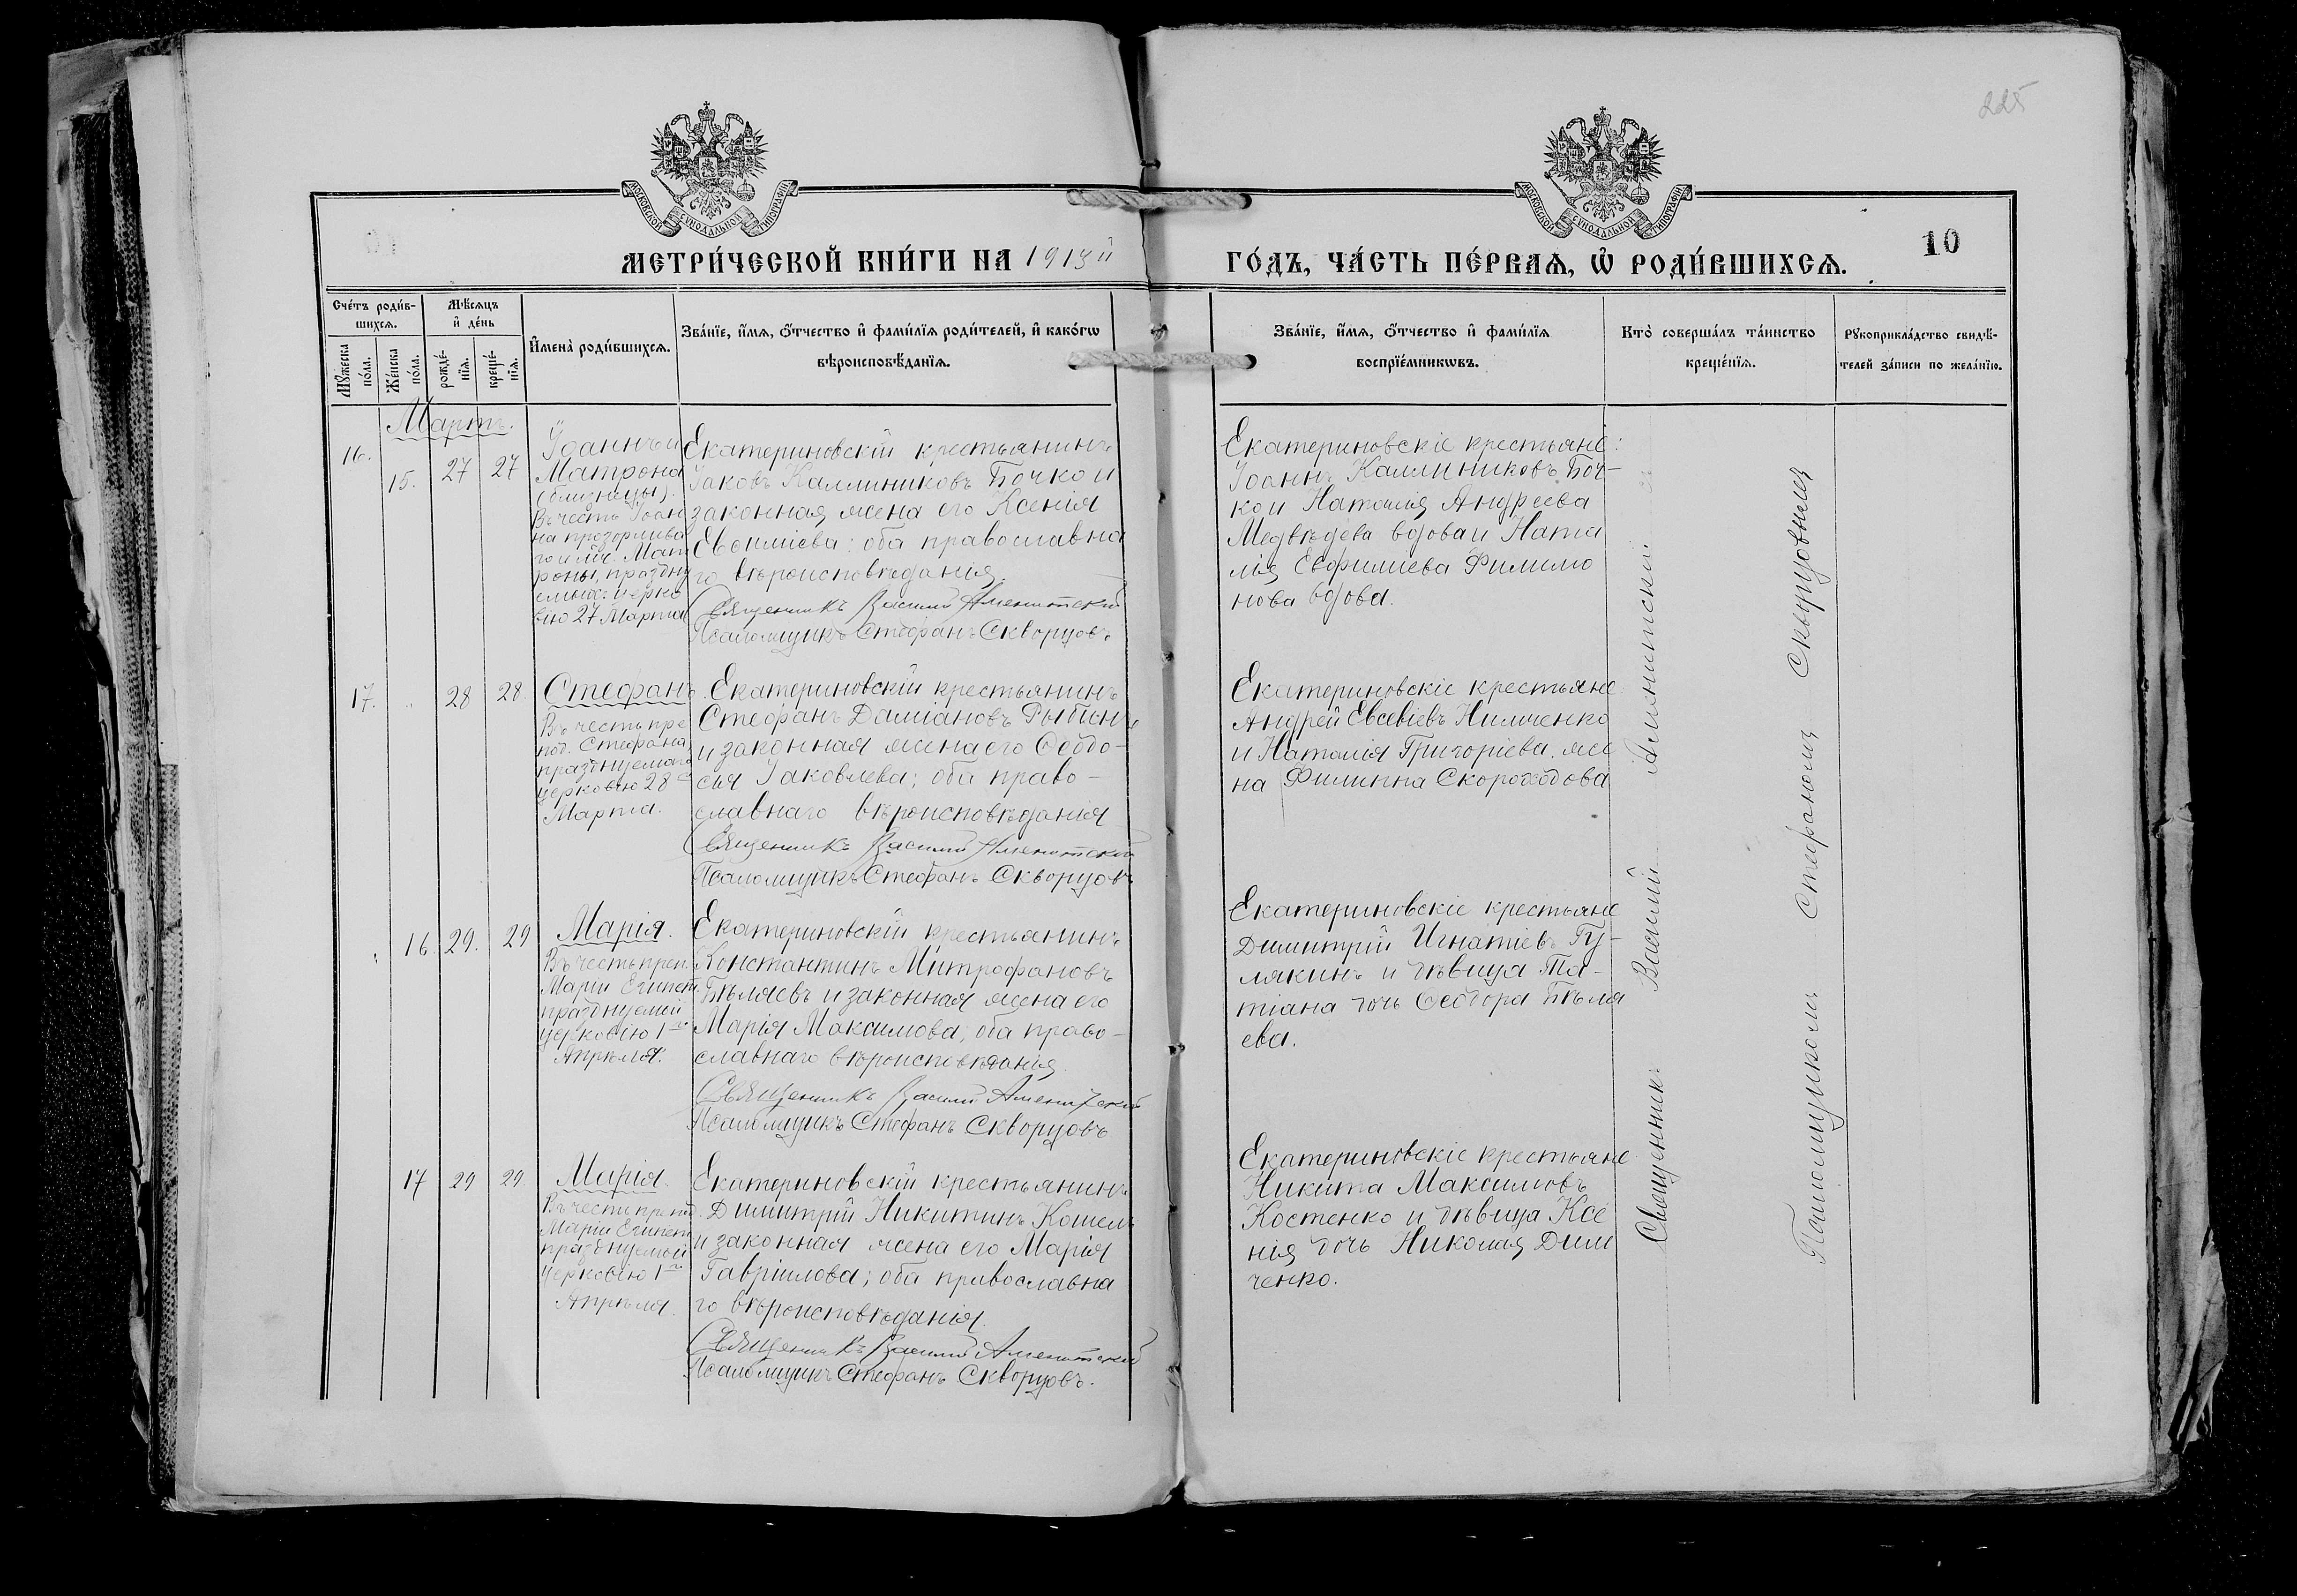 225
МОСКОВСКОЙ СѴНОДАЛЬНОЙ ТИПОГРАФІИ
МОСКОВСКОЙ СѴНОДАЛЬНОЙ ТИПОГРАФІИ
МЕТРИ́ЧЕСКОЙ КНИ́ГИ НА 1913й
ГО́ДЪ, ЧА́СТЬ ПЕ́РВАЯ, Ѡ҆ РОДИ́ВШИХСЯ.
10
Сче́тъ роди́в-
шихся.
Мѣ́сяцъ
и҆ де́нь
Мꙋ́жеска
по́ла.
Же́нска
по́ла.
рожде́-
нїя.
креще́-
нїя.
И҆мена̀ роди́вшихся.
Зва́нїе, и҆́мя, ѻ҆́тчество и҆ фами́лїя роди́телей, и҆ како́гѡ
вѣроисповѣ́данїя.
Зва́нїе, и҆́мя, ѻ҆́тчество и҆ фами́лїя
воспрїе́мникѡвъ.
Кто̀ соверша́лъ та́инство
креще́нїя.
Рꙋкоприкла́дство свидѣ́-
телей за́писи по жела́нїю.
Мартъ.
16.
15.
27
27
Іоаннъ и
Матрона
(близнецы).
Въ честь Іоан
на прозорлива
го и мч. Мат
роны, праздну
емыхъ церко
вію 27 Марта
Екатериновскій крестьянинъ
Іаковъ Каллиниковъ Бочко и
законная жена его Ксенія
Евфиміева: оба православна
го вѣроисповѣданія.
Священникъ Василій Аменитскій
Псаломщикъ Стефанъ Скворцовъ
Екатериновскіе крестьяне:
Іоаннъ Каллиниковъ Боч-
ко и Наталія Андреева
Медвѣдева вдова и Ната
лія Евфиміева Филимо
нова вдова.
17.
28
28.
Стефанъ
Въ честь пре
под. Стефана,
празднуемаго
церковію 28 го
Марта.
Екатериновскій крестьянинъ
Стефанъ Даміановъ Рыбинъ
и законная жена его Ѳеодо-
сія Іаковлева; оба право-
славнаго вѣроисповѣданія
Священникъ Василій Аменитскій
Псаломщикъ Стефанъ Скворцовъ
Екатериновскіе крестьяне
Андрей Евсевіевъ Нимченко
и Наталія Григоріева, же
на Филиппа Скороходова
16
29.
29
Марія.
Въ честь преп.
Маріи Египет.
празднуемой
церковію 1 го
Апрѣля.
Екатериновскій крестьянинъ
Константинъ Митрофановъ
Бѣляевъ и законная жена его
Марія Максимова; оба право-
славнаго вѣроисповѣданія.
Священникъ Василій Аменитскій
Псаломщикъ Стефанъ Скворцовъ
Екатериновскіе крестьяне
Димитрій Игнатіевъ Гу-
лякинъ и дѣвица Та-
тіана дочь Ѳеодора Бѣля
ева.
17
29
29
Марія.
Въ честь препод.
Маріи Египет.
празднуемой
церковію 1 го
Апрѣля.
Екатериновскій крестьянинъ
Димитрій Никитинъ Кошель
и законная жена его Марія
Гавріилова; оба православна
го вѣроисповѣданія.
Священникъ Василій Аменитскій
Псаломщикъ Стефанъ Скворцовъ.
Екатериновскіе крестьяне
Никита Максимовъ
Костенко и дѣвица Ксе
нія дочь Николая Дим
ченко.
Священникъ Василій Аменитскій съ
Псаломщикомъ Стефаномъ Скворцовымъ